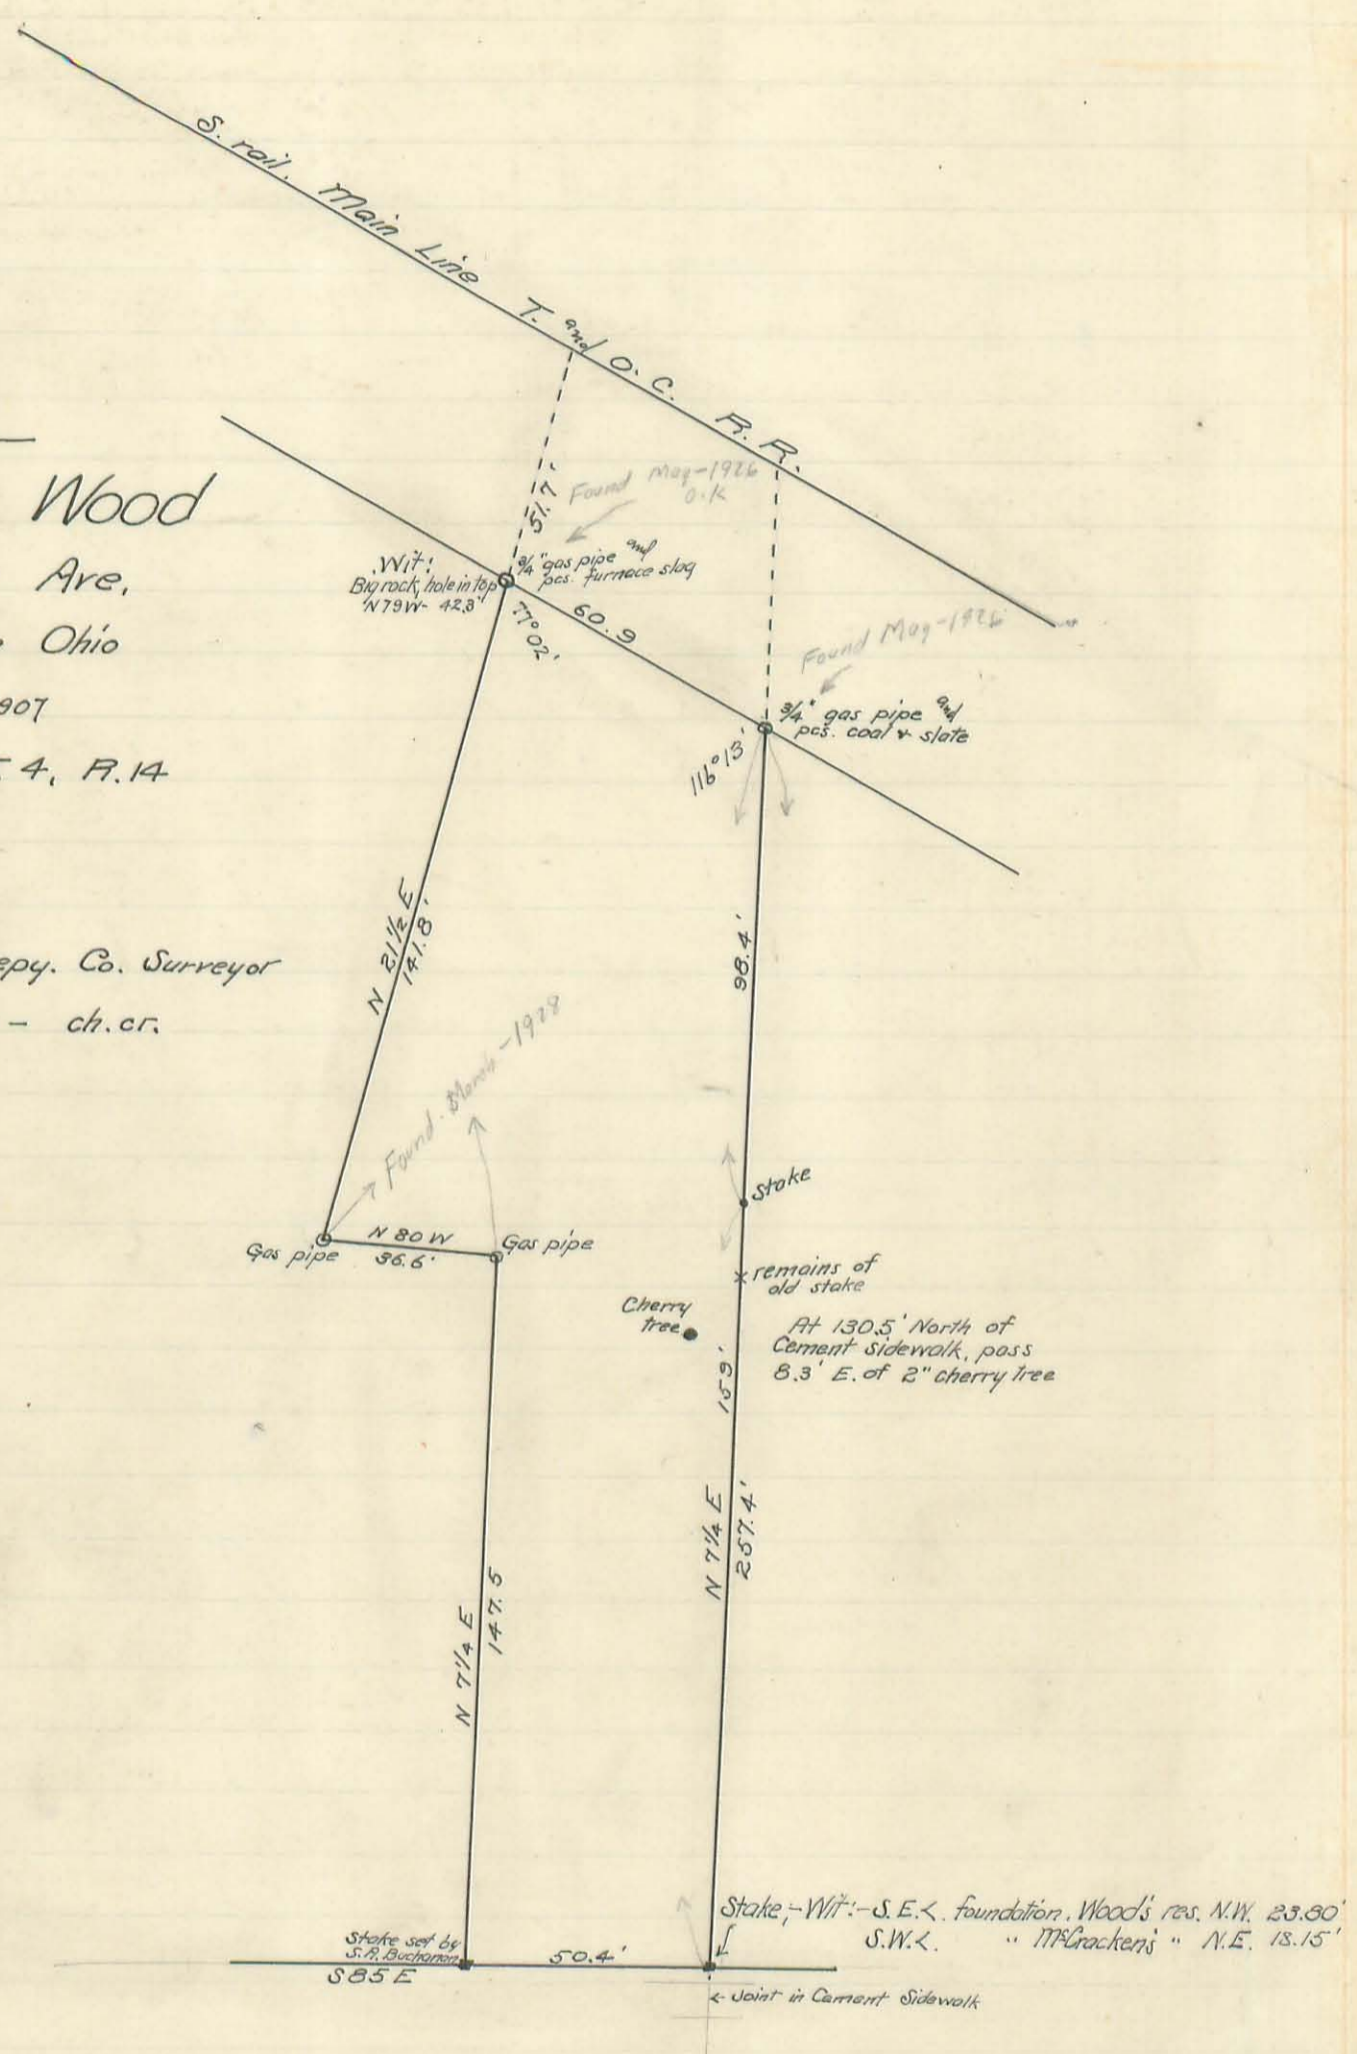 S. rail. Main Line T. and O. C. R. R.
Wood
Ave,
Ohio
907
T 4, R. 14
epy. Co. Surveyor
- ch. cr.
51.7'
Found May-1926
O.K
3/4" gas pipe and
pcs. furnace slag
Wit:
Big rock, hole in top
N79W- 42.3'
77° 02'
60.9
Found May-1926
3/4" gas pipe and
pcs. coal & slate
116° 13'
N 21 1/2 E
141.8'
98.4'
Found March-1928
Stake
N 80 W
36.6'
Gas pipe
Gas pipe
remains of
old stake
Cherry
tree
At 130.5' North of
Cement Sidewalk, pass
8.3' E. of 2" cherry tree
159'
N 7 1/4 E
257.4'
N 7 1/4 E
147.5
Stake;-Wit:-S.E.<. foundation, Wood's res. N.W. 23.80'
S.W.<. " McCracken's " N.E. 18.15'
Stake set by
S.A. Buchanan
50.4'
S 85 E
← Joint in Cement Sidewalk